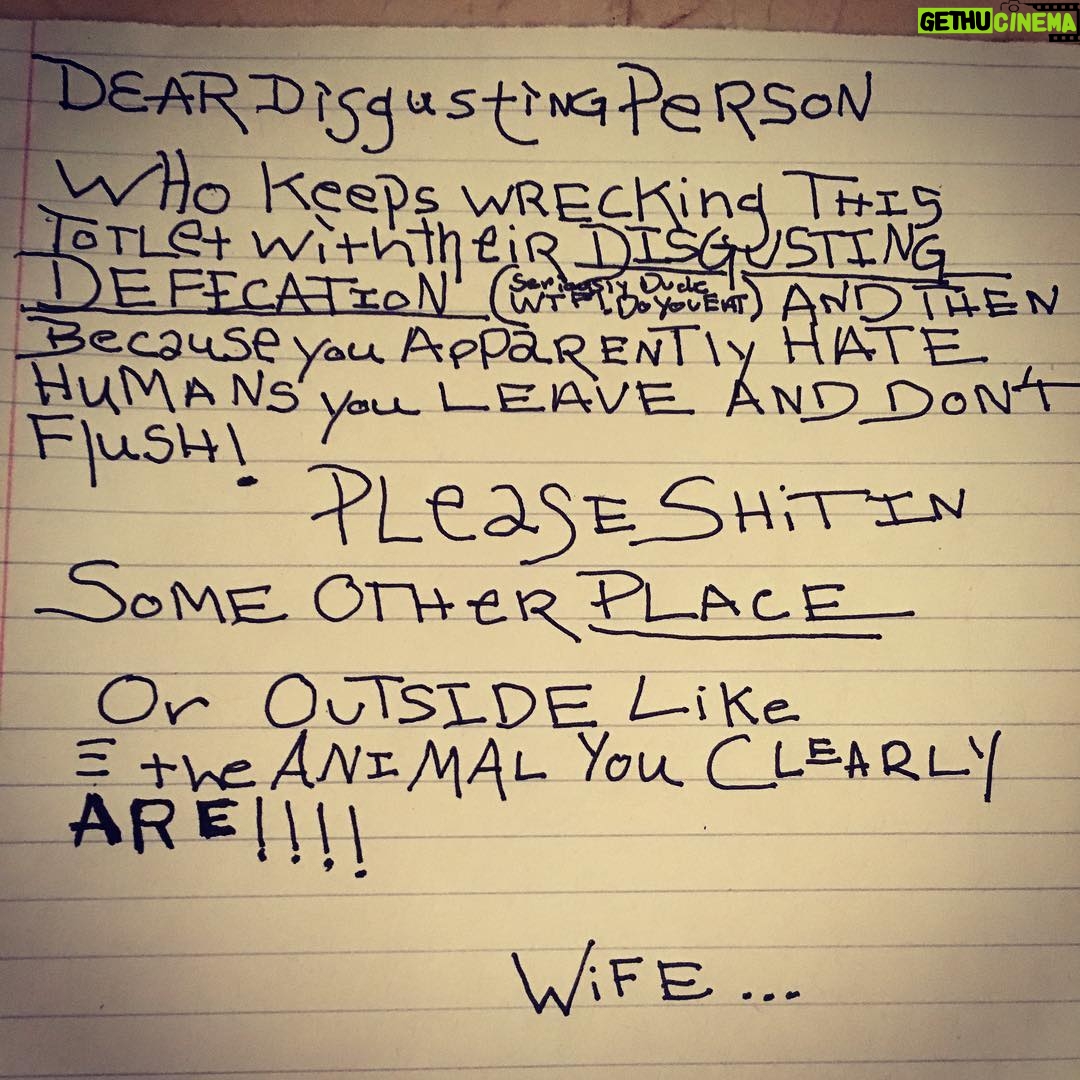 GETHUCINEMA
DEAR DisgustiNG PeRSON
WHo Keeps WRECKing THIS
ToILet with their DISGUSTING
DEFECATIoN (Seriously Dude WTF. Do You EAT) AND THEN
Because you AppaRENTly HATE
HUMANS you LEAVE AND DON't
FlusH!
PLeaSE SHiT IN
SoME OTHeR PLACE
Or OuTSIDE Like
the ANIMAL You CLEARLY
ARE!!!!
WiFE...